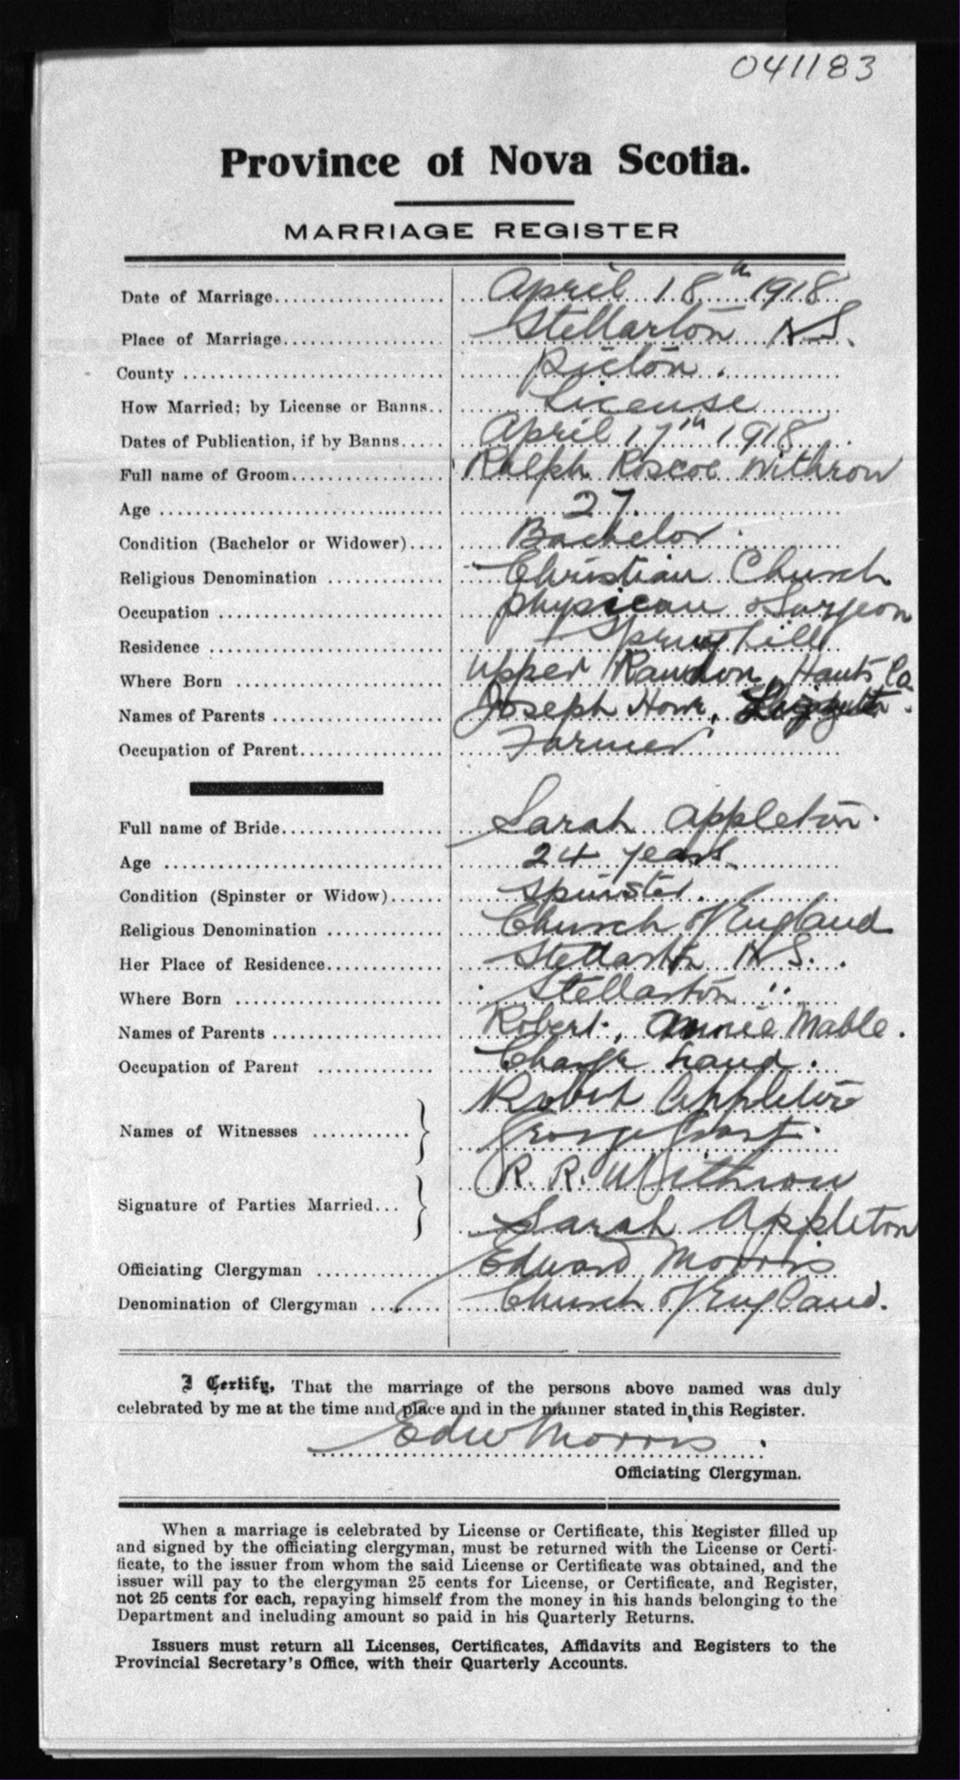 041183
Province of Nova Scotia.
MARRIAGE REGISTER
Date of Marriage.................... April 18th 1918
Place of Marriage................... Stellarton N S.
County ................................ Pictou.
How Married; by License or Banns.. License
Dates of Publication, if by Banns..... April 17th 1918
Full name of Groom.................. Ralph Roscoe Withrow
Age ................................... 27
Condition (Bachelor or Widower).... Bachelor.
Religious Denomination .............. Christian Church
Occupation ............................ Physican & Surgeon
Residence ............................. Springhill
Where Born .......................... Upper Rawdon, Hants Co.
Names of Parents ..................... Joseph Howe,
Occupation of Parent................. Farmer
Full name of Bride.................... Sarah Appleton.
Age .................................... 24 years
Condition (Spinster or Widow)...... Spinster.
Religious Denomination .............. Church of England
Her Place of Residence.............. Stellarton N S.
Where Born .......................... Stellarton "
Names of Parents ..................... Robert, Annie Mable.
Occupation of Parent .............. Charge hand.
Robert Appleton
Names of Witnesses ........... } George Grant.
R. R. Withrow
Signature of Parties Married... }
Sarah Appleton
Officiating Clergyman ............... Edward Morris
Denomination of Clergyman ......... Church of England.
I Certify, That the marriage of the persons above named was duly
celebrated by me at the time and place and in the manner stated in this Register.
Edw Morris.
Officiating Clergyman.
When a marriage is celebrated by License or Certificate, this Register filled up
and signed by the officiating clergyman, must be returned with the License or Certi-
ficate, to the issuer from whom the said License or Certificate was obtained, and the
issuer will pay to the clergyman 25 cents for License, or Certificate, and Register,
not 25 cents for each, repaying himself from the money in his hands belonging to the
Department and including amount so paid in his Quarterly Returns.
Issuers must return all Licenses, Certificates, Affidavits and Registers to the
Provincial Secretary's Office, with their Quarterly Accounts.